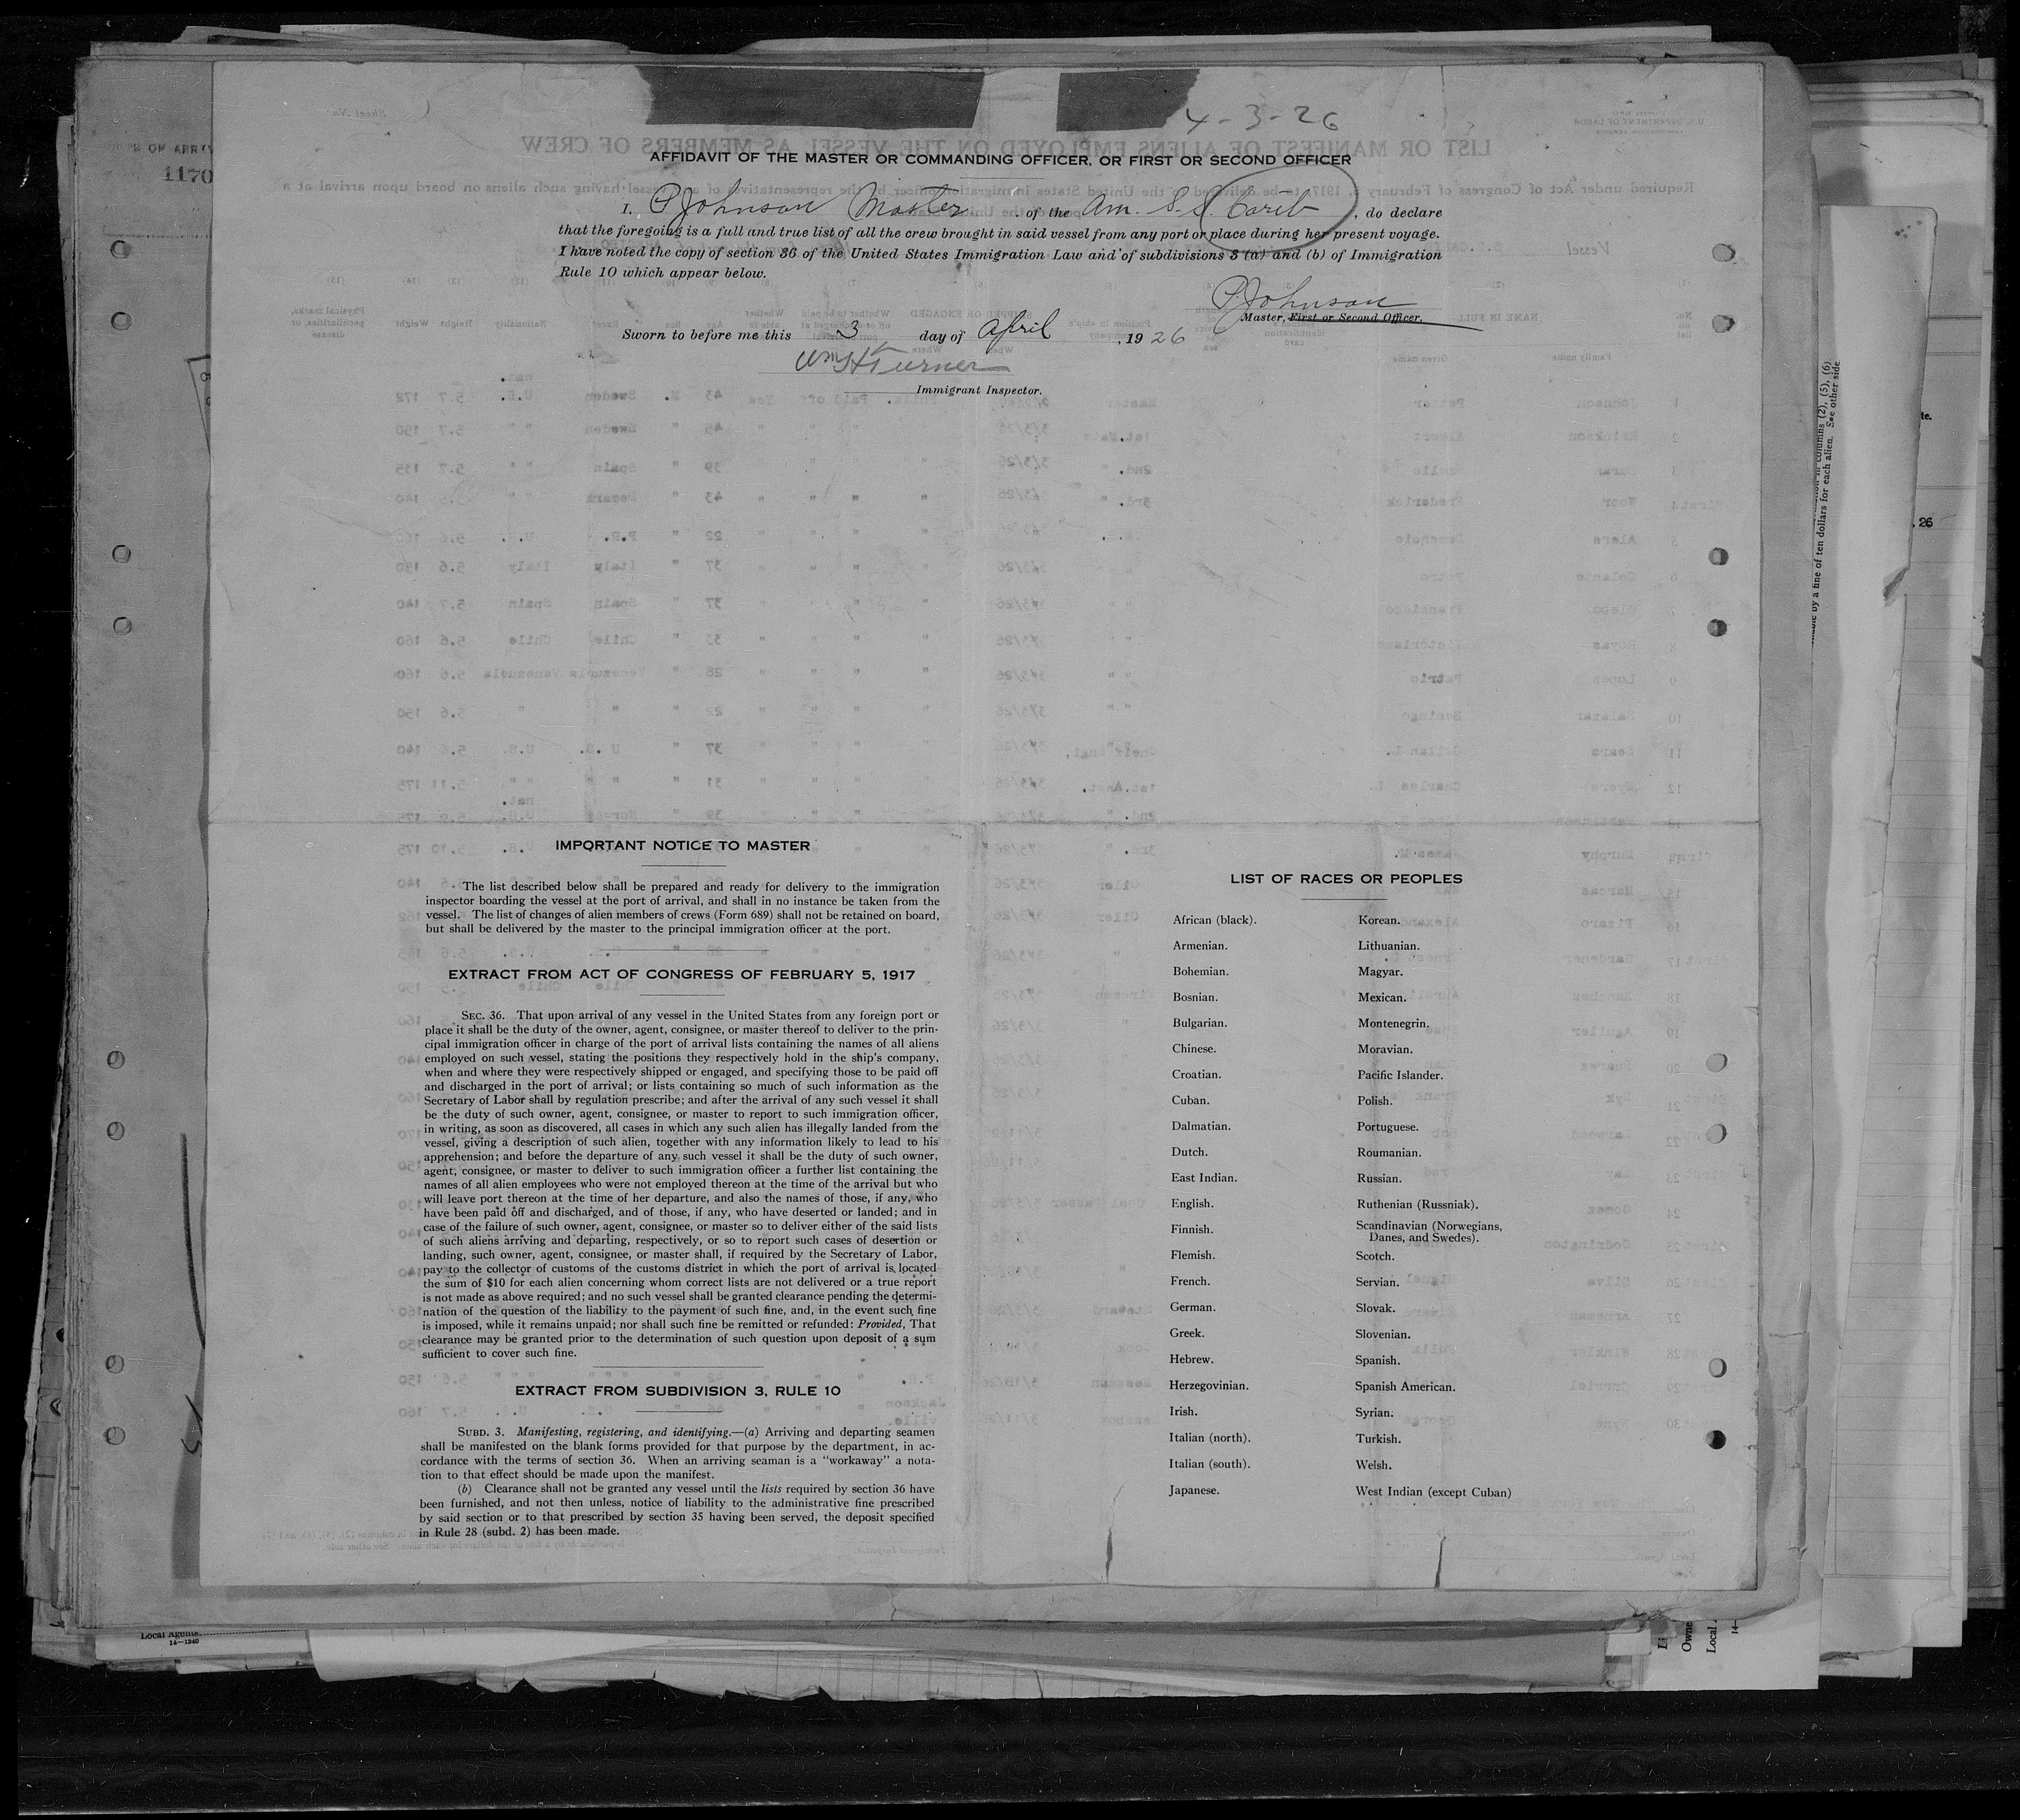 4-3-26
AFFIDAVIT OF THE MASTER OR COMMANDING OFFICER, OR FIRST OR SECOND OFFICER
I, P Johnson Master, of the Am. S.S. Carib, do declare
that the foregoing is a full and true list of all the crew brought in said vessel from any port or place during her present voyage.
I have noted the copy of section 36 of the United States Immigration Law and of subdivisions 3 (a) and (b) of Immigration
Rule 10 which appear below.
P Johnson
Master, First or Second Officer.
Sworn to before me this 3 day of April, 1926
Wm H Turner
Immigrant Inspector.
IMPORTANT NOTICE TO MASTER
The list described below shall be prepared and ready for delivery to the immigration
inspector boarding the vessel at the port of arrival, and shall in no instance be taken from the
vessel. The list of changes of alien members of crews (Form 689) shall not be retained on board,
but shall be delivered by the master to the principal immigration officer at the port.
EXTRACT FROM ACT OF CONGRESS OF FEBRUARY 5, 1917
SEC. 36. That upon arrival of any vessel in the United States from any foreign port or
place it shall be the duty of the owner, agent, consignee, or master thereof to deliver to the prin-
cipal immigration officer in charge of the port of arrival lists containing the names of all aliens
employed on such vessel, stating the positions they respectively hold in the ship's company,
when and where they were respectively shipped or engaged, and specifying those to be paid off
and discharged in the port of arrival; or lists containing so much of such information as the
Secretary of Labor shall by regulation prescribe; and after the arrival of any such vessel it shall
be the duty of such owner, agent, consignee, or master to report to such immigration officer,
in writing, as soon as discovered, all cases in which any such alien has illegally landed from the
vessel, giving a description of such alien, together with any information likely to lead to his
apprehension; and before the departure of any such vessel it shall be the duty of such owner,
agent, consignee, or master to deliver to such immigration officer a further list containing the
names of all alien employees who were not employed thereon at the time of the arrival but who
will leave port thereon at the time of her departure, and also the names of those, if any, who
have been paid off and discharged, and of those, if any, who have deserted or landed; and in
case of the failure of such owner, agent, consignee, or master so to deliver either of the said lists
of such aliens arriving and departing, respectively, or so to report such cases of desertion or
landing, such owner, agent, consignee, or master shall, if required by the Secretary of Labor,
pay to the collector of customs of the customs district in which the port of arrival is located
the sum of $10 for each alien concerning whom correct lists are not delivered or a true report
is not made as above required; and no such vessel shall be granted clearance pending the determi-
nation of the question of the liability to the payment of such fine, and, in the event such fine
is imposed, while it remains unpaid; nor shall such fine be remitted or refunded: Provided, That
clearance may be granted prior to the determination of such question upon deposit of a sum
sufficient to cover such fine.
EXTRACT FROM SUBDIVISION 3, RULE 10
SUBD. 3. Manifesting, registering, and identifying.—(a) Arriving and departing seamen
shall be manifested on the blank forms provided for that purpose by the department, in ac-
cordance with the terms of section 36. When an arriving seaman is a "workaway" a nota-
tion to that effect should be made upon the manifest.
(b) Clearance shall not be granted any vessel until the lists required by section 36 have
been furnished, and not then unless, notice of liability to the administrative fine prescribed
by said section or to that prescribed by section 35 having been served, the deposit specified
in Rule 28 (subd. 2) has been made.
LIST OF RACES OR PEOPLES
African (black). Korean.
Armenian. Lithuanian.
Bohemian. Magyar.
Bosnian. Mexican.
Bulgarian. Montenegrin.
Chinese. Moravian.
Croatian. Pacific Islander.
Cuban. Polish.
Dalmatian. Portuguese.
Dutch. Roumanian.
East Indian. Russian.
English. Ruthenian (Russniak).
Finnish. Scandinavian (Norwegians,
Danes, and Swedes).
Flemish. Scotch.
French. Servian.
German. Slovak.
Greek. Slovenian.
Hebrew. Spanish.
Herzegovinian. Spanish American.
Irish. Syrian.
Italian (north). Turkish.
Italian (south). Welsh.
Japanese. West Indian (except Cuban)
1170
Local Agents
14—1240
columns (2), (5), (6)
by a fine of ten dollars for each alien. See other side
26
Owne
Local
14—